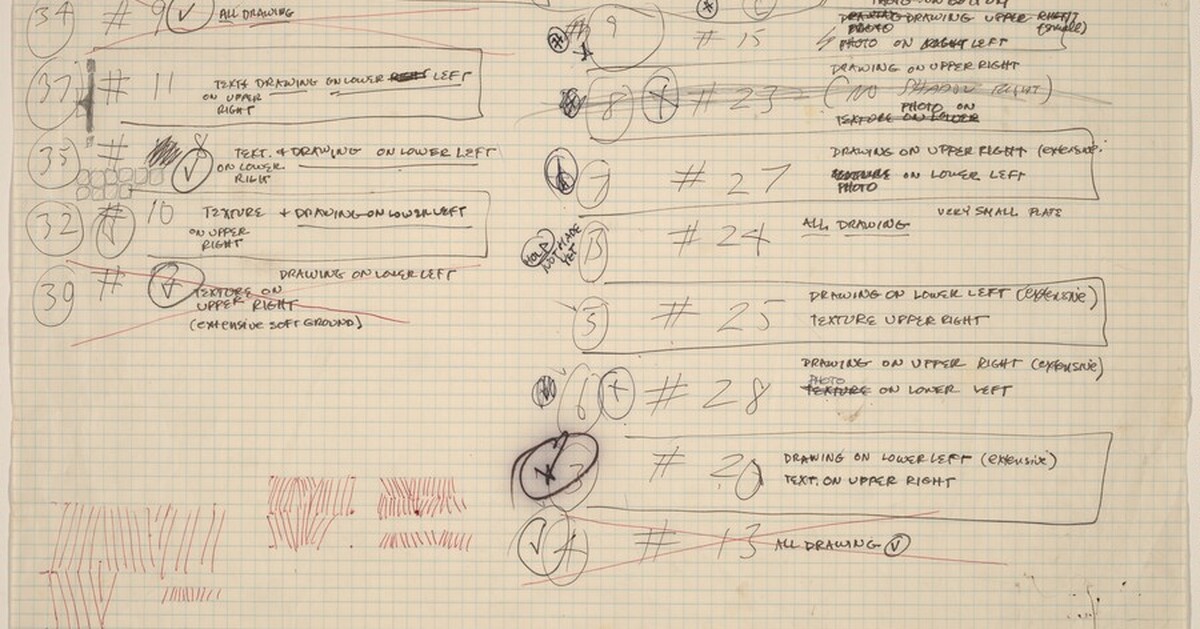 34 # 9 ✓ ALL DRAWING
37 # 11 TEXT & DRAWING ON LOWER LEFT
ON UPPER
RIGHT
35 # 8 ✓ TEXT. & DRAWING ON LOWER LEFT
ON LOWER
RIGHT
32 # 10 TEXTURE + DRAWING ON LOWER LEFT
ON UPPER
RIGHT
39 # DRAWING ON LOWER LEFT
TEXTURE ON
UPPER RIGHT
(EXTENSIVE SOFT GROUND)
PHOTO ON BOTTOM
DRAWING UPPER RIGHT
(small)
9 # 15 PHOTO ON LEFT
DRAWING ON UPPER RIGHT
8 + # 23 (NO SHADOW RIGHT)
PHOTO ON
TEXTURE ON LOWER
DRAWING ON UPPER RIGHT (extensive.
7 # 27 TEXTURE ON LOWER LEFT
PHOTO
VERY SMALL PLATE
HOLD NOT MADE YET 13 # 24 ALL DRAWING
5 # 25 DRAWING ON LOWER LEFT (extensive)
TEXTURE UPPER RIGHT
DRAWING ON UPPER RIGHT (extensive)
PHOTO
6 + # 28 TEXTURE ON LOWER LEFT
3 # 20 DRAWING ON LOWER LEFT (extensive)
TEXT. ON UPPER RIGHT
✓ 4 # 13 ALL DRAWING ✓